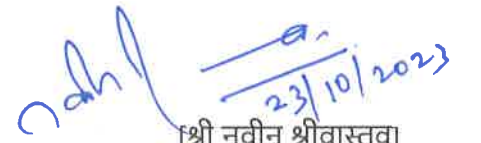 23/10/2023
[श्री नवीन श्रीवास्तव]